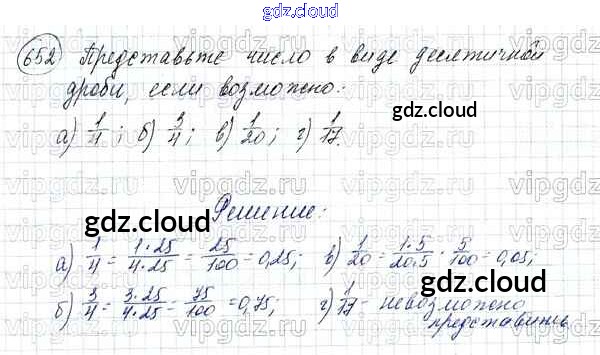 gdz.cloud
gdz.cloud
652 Представьте число в виде десятичной
дроби, если возможно:
gdz.cloud
а) 1/4; б) 3/4; в) 1/20; г) 1/17.
vipgdz vipgdz vipgdz vipgdz
Решение:
gdz.cloud
а) 1/4 = 1·25/4·25 = 25/100 = 0,25; в) 1/20 = 1·5/20·5 = 5/100 = 0,05;
gdz.cloud
б) 3/4 = 3·25/4·25 = 75/100 = 0,75; г) 1/17 - невозможно
представить